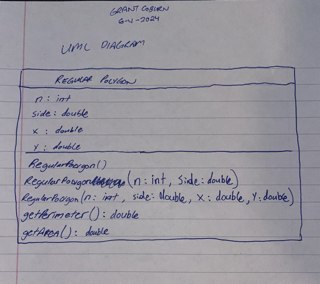 GRANT COBURN
6-4-2024
UML DIAGRAM
REGULAR POLYGON
n: int
side: double
x: double
y: double
RegularPolygon()
RegularPolygon(n: int, side: double)
RegularPolygon(n: int, side: double, x: double, y: double)
getPerimeter(): double
getAREA(): double